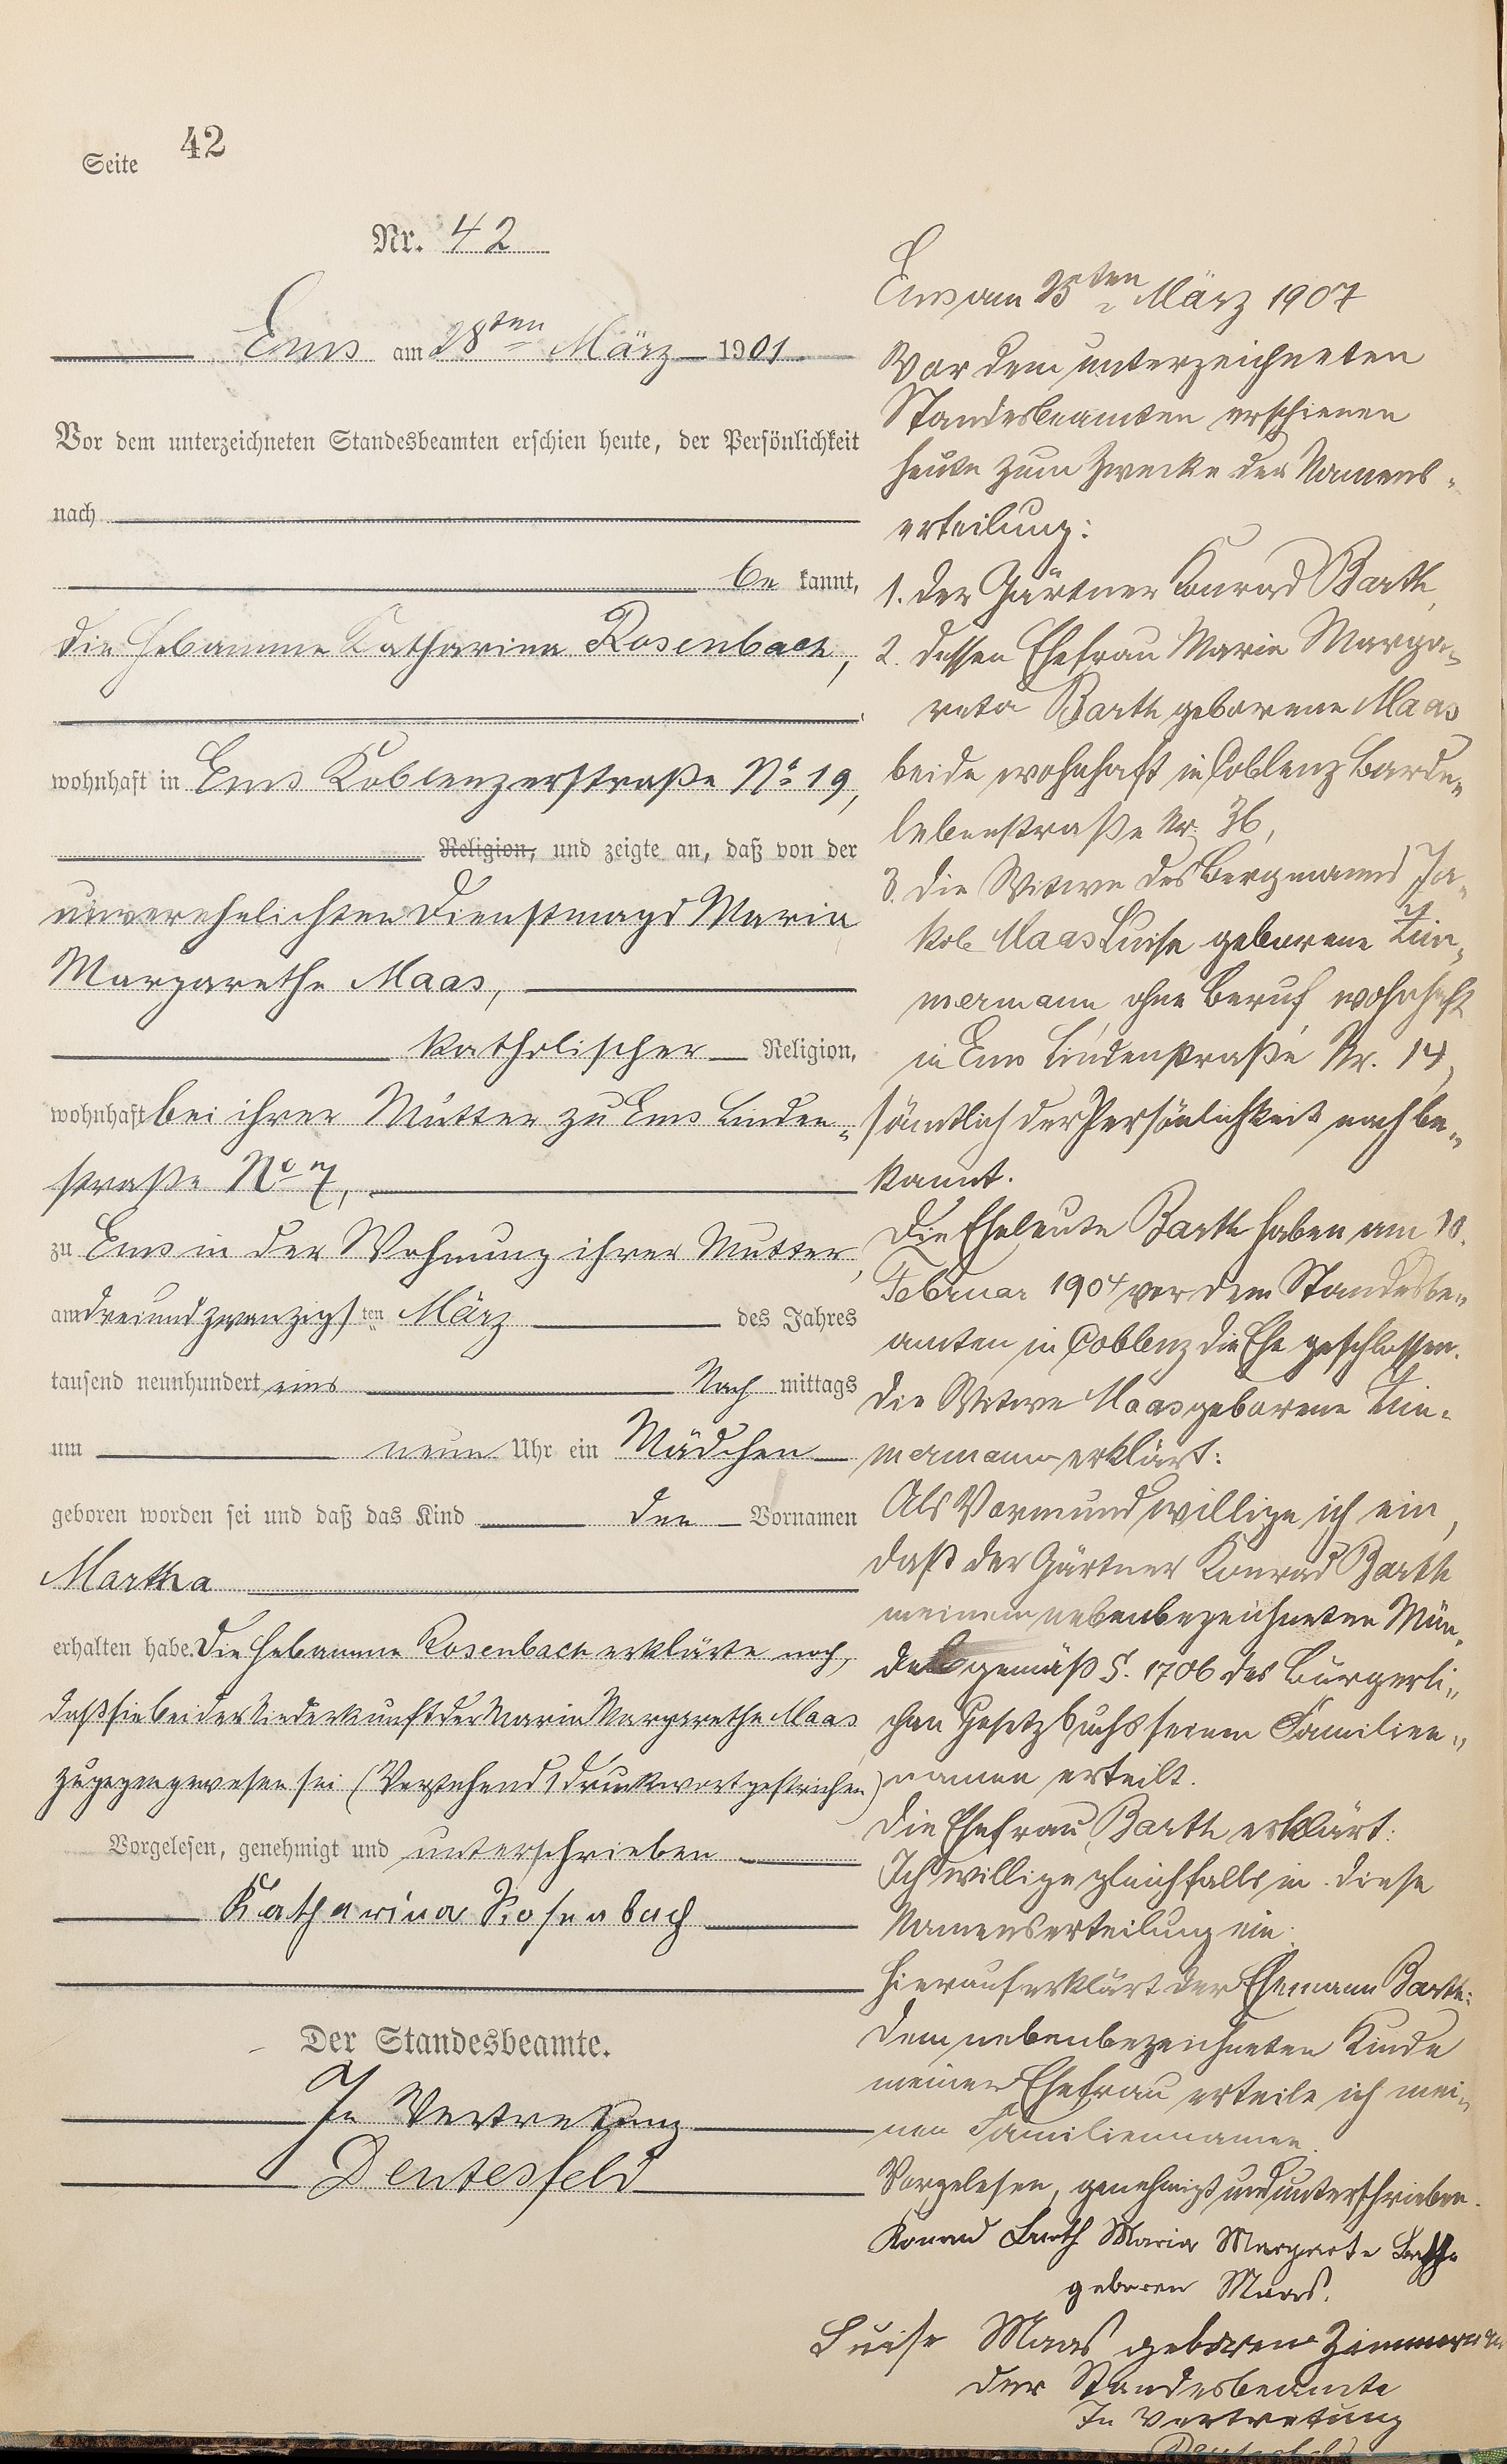 Seite 42
Nr. 42
Ems am 28ten März 1901
Vor dem unterzeichneten Standesbeamten erschien heute, der Persönlichkeit
nach
be kannt,
die Hebamme Katharina Rosenbach,
wohnhaft in Ems Koblenzerstraße No 19,
Religion, und zeigte an, daß von der
unverehelichten Dienstmagd Maria
Margarethe Maas,
katholischer Religion,
wohnhaft bei ihrer Mutter zu Ems Linden-
straße No 7,
zu Ems in der Wohnung ihrer Mutter,
am dreiundzwanzigsten März des Jahres
tausend neunhundert eins Nach mittags
um neun Uhr ein Mädchen
geboren worden sei und daß das Kind den Vornamen
Martha
erhalten habe. Die Hebamme Rosenbach erklärte noch,
daß sie bei der Niederkunft der Maria Margarethe Maas
zugegen gewesen sei (Vorstehend 1 Druckwort gestrichen)
Vorgelesen, genehmigt und unterschrieben
Katharina Rosenbach
Der Standesbeamte.
In Vertretung
Dentesfeld
Ems am 25ten März 1907
Vor dem unterzeichneten
Standesbeamten erschienen
heute zum Zwecke der Namens-
erteilung:
1. der Gärtner Konrad Barth,
2. dessen Ehefrau Maria Marga-
reta Barth geborene Maas
beide wohnhaft in Coblenz Barde-
lebenstraße Nr. 36,
3. die Witwe des Bergmanns Ja-
kob Maas Luise geborene Zim-
mermann ohne Beruf wohnhaft
in Ems Lindenstraße Nr. 14,
sämtlich der Persönlichkeit nach be-
kannt.
Die Eheleute Barth haben am 10.
Februar 1904 vor dem Standesbe-
amten in Coblenz die Ehe geschlossen.
Die Witwe Maas geborene Zim-
mermann erklärt:
Als Vormund willige ich ein,
daß der Gärtner Konrad Barth
meinem nebenbezeichneten Mün-
del gemäß §. 1706 des Bürgerli-
chen Gesetzbuchs seinen Familien-
namen erteilt.
Die Ehefrau Barth erklärt:
Ich willige gleichfalls in diese
Namenserteilung ein.
Hierauf erklärt der Ehemann Barth:
Dem nebenbezeichneten Kinde
meiner Ehefrau erteile ich mei-
nen Familiennamen.
Vorgelesen, genehmigt und unterschrieben.
Konrad Barth Maria Margarete Barth
geboren Maas.
Luise Maas geborene Zimmermann
Der Standesbeamte
In Vertretung